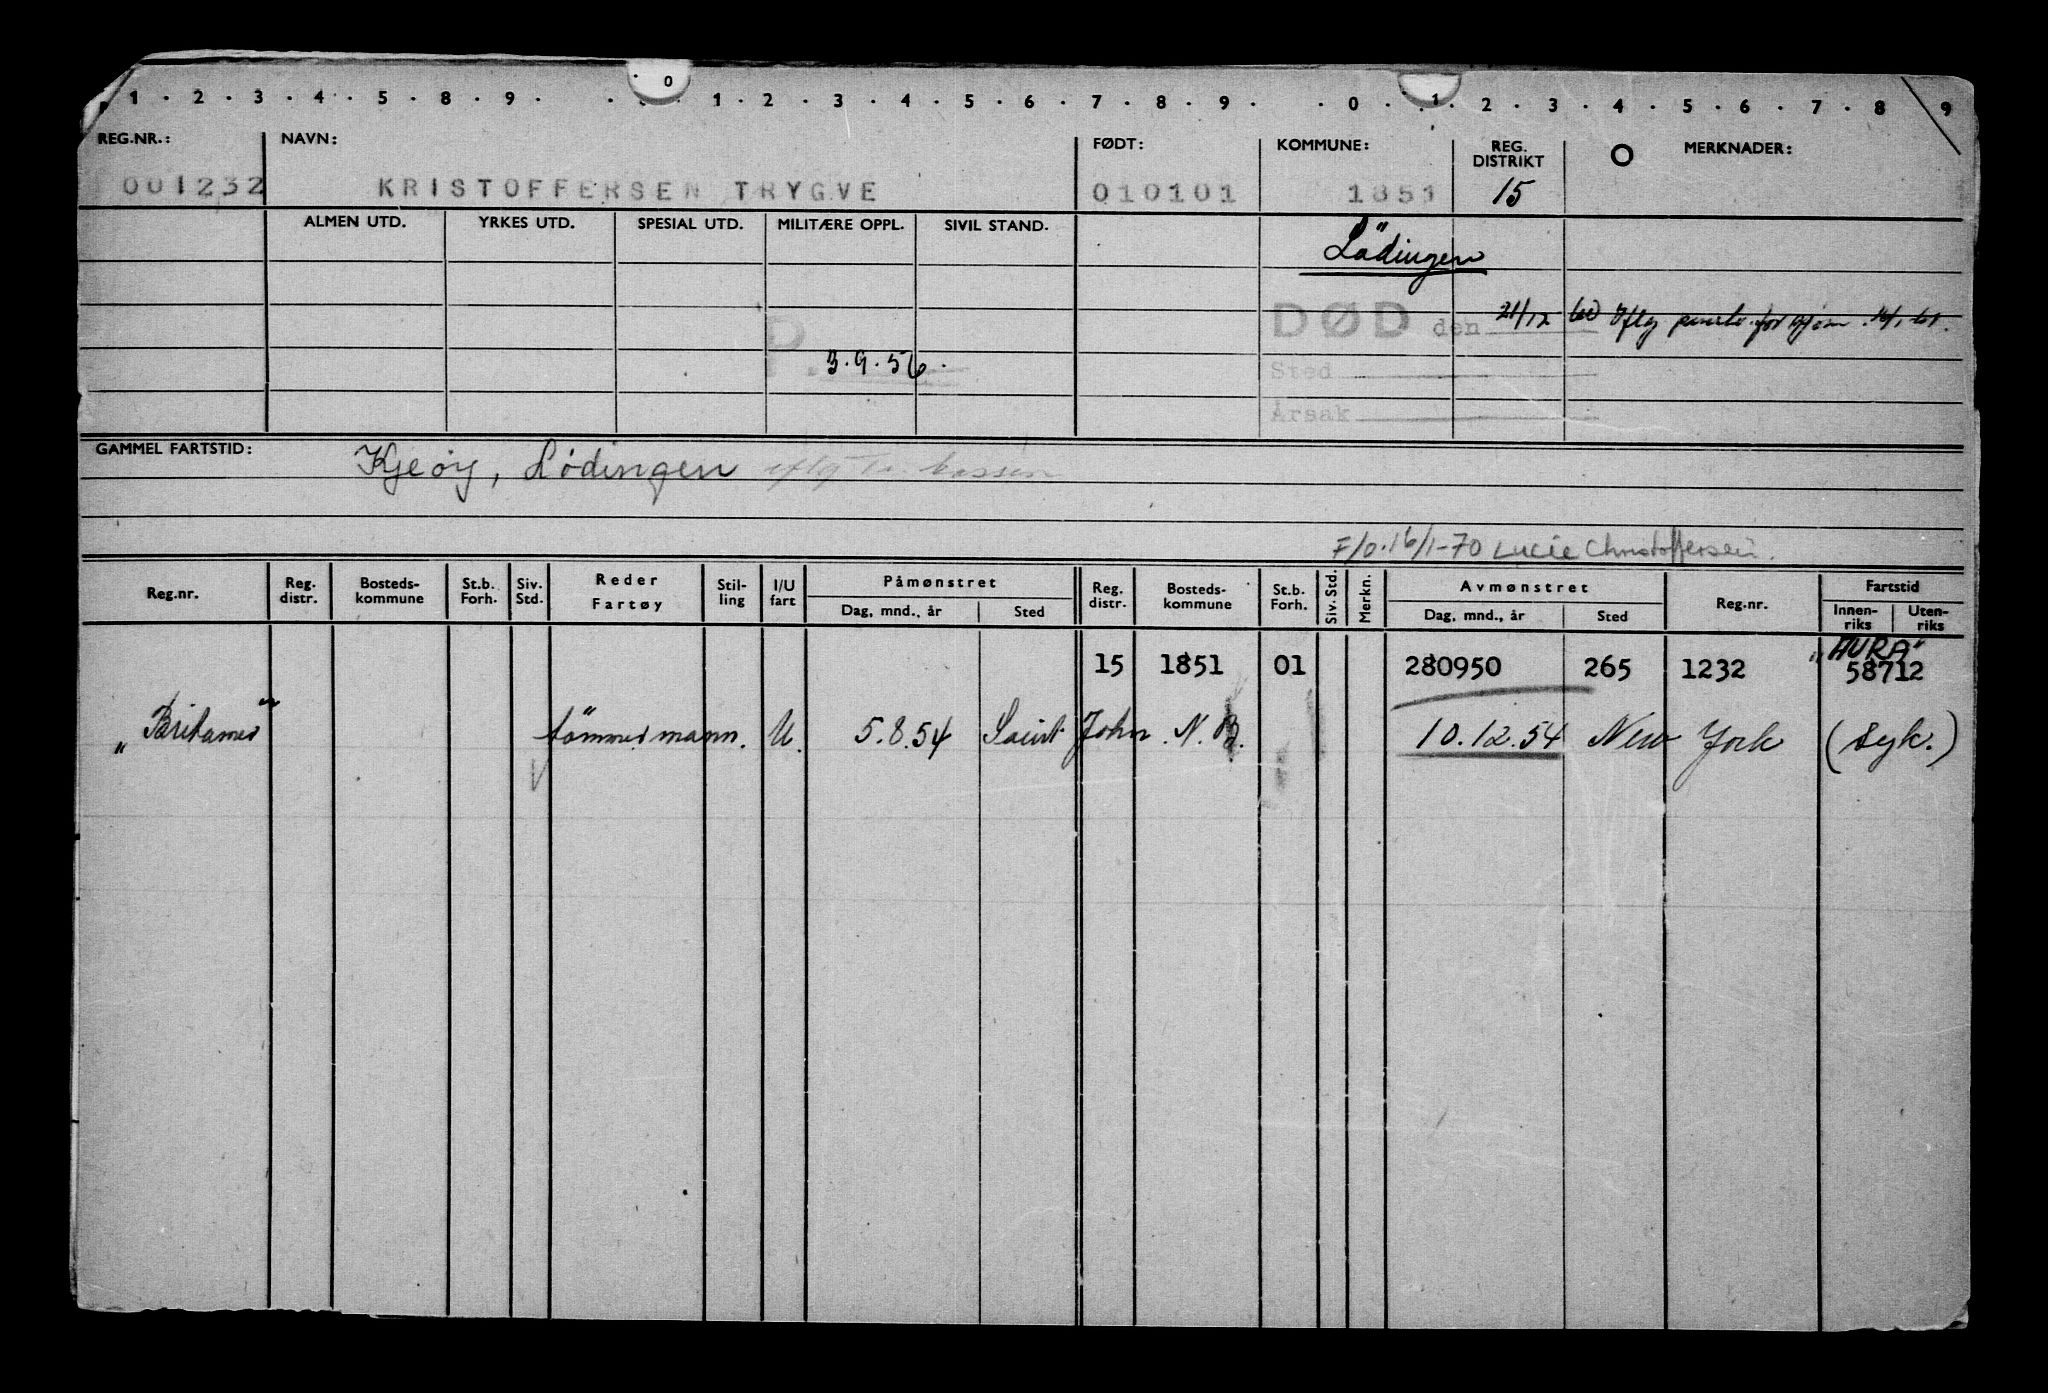 1 . 2 . 3 . 4 . 5 . 8 . 9 . . 0 . 1 . 2 . 3 . 4 . 5 . 6 . 7 . 8 . 9 . . 0 . 1 . 2 . 3 . 4 . 5 . 6 . 7 . 8 9
REG.NR.: NAVN: FØDT: KOMMUNE: REG. DISTRIKT O MERKNADER:
001232 KRISTOFFERSEN TRYGVE 010101 1851 15
ALMEN UTD. YRKES UTD. SPESIAL UTD. MILITÆRE OPPL. SIVIL STAND.
Lödingen
DØD den 21/12 60
P. 3.9.56.
Sted
Årsak
GAMMEL FARTSTID: Kjeøy, Lødingen
F/O.16/1-70 Lucie Christoffersen.
Reg.nr. Reg. distr. Bosteds-kommune St.b. Forh. Siv. Std. Reder Fartøy Stil-ling I/U fart Påmønstret Dag, mnd., år Sted Reg. distr. Bosteds-kommune St.b. Forh. Siv. Std. Merkn. Avmønstret Dag, mnd., år Sted Reg.nr. Fartstid Innen-riks Uten-riks
"AURA"
15 1851 01 280950 265 1232 58712
tömmermann. U. 5.8.54 Saint John N.B. 10.12.54 New York (syk.)